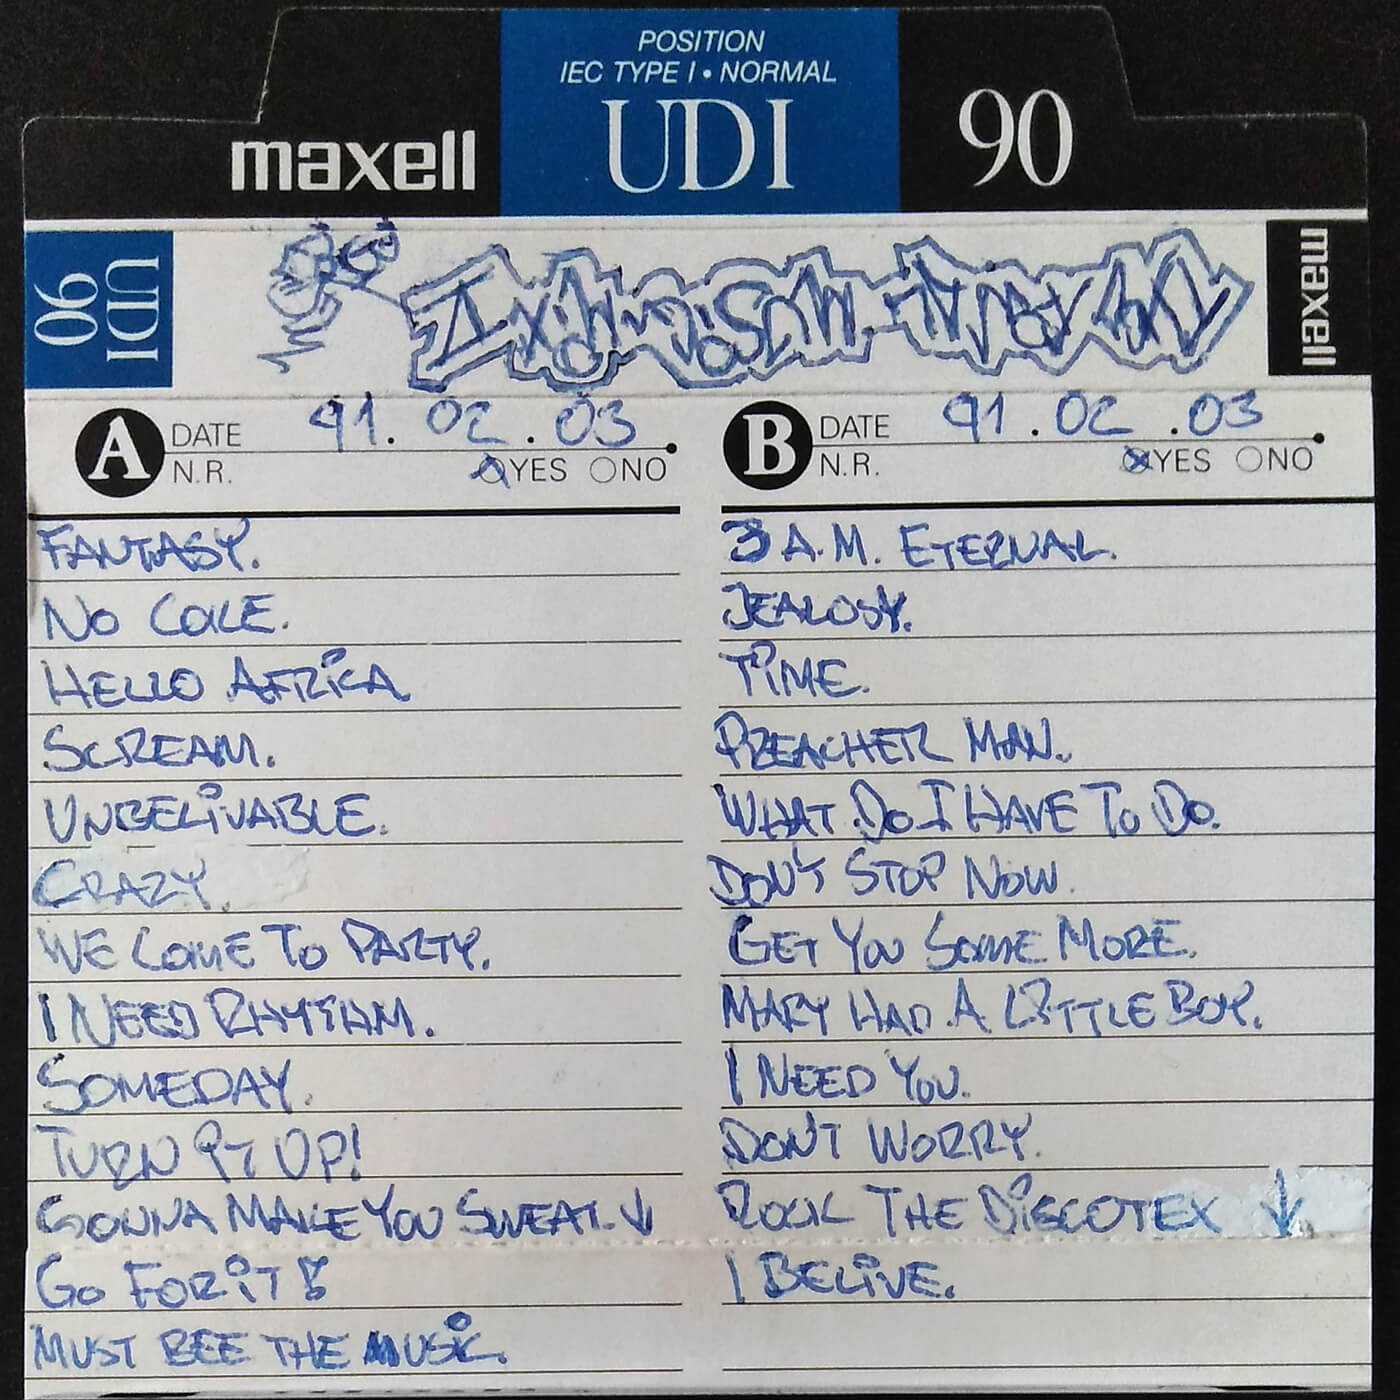 POSITION
IEC TYPE I • NORMAL
maxell UDI 90
UDI 90
maxell
A DATE 91.02.03
N.R. YES NO
FANTASY.
NO COKE.
HELLO AFRICA
SCREAM.
UNBELIVABLE.
CRAZY.
WE COME TO PARTY.
I NEED RHYTHM.
SOMEDAY.
TURN IT UP!
GONNA MAKE YOU SWEAT. ↓
GO FOR IT!
MUST BEE THE MUSIC.
B DATE 91.02.03
N.R. YES NO
3 A.M. ETERNAL.
JEALOSY.
TIME.
PREACHER MAN.
WHAT DO I HAVE TO DO.
DON'T STOP NOW.
GET YOU SOME MORE.
MARY HAD A LITTLE BOY.
I NEED YOU.
DON'T WORRY.
ROCK THE DISCOTEX ↓
I BELIVE.